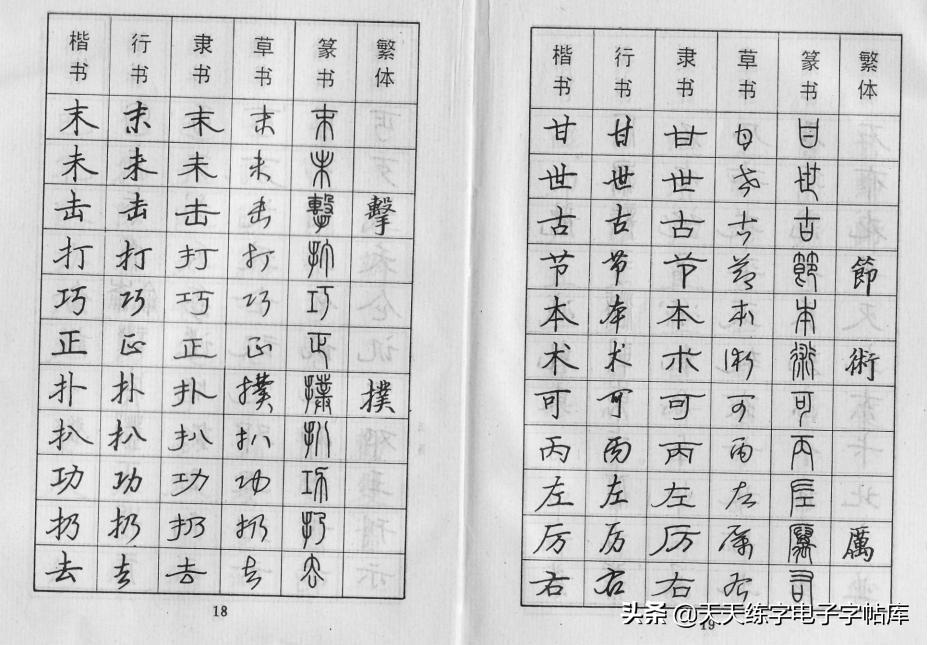 楷书 行书 隶书 草书 篆书 繁体
末 末 末 末 末
未 未 未 未 未
击 击 击 击 擊 擊
打 打 打 打 打
巧 巧 巧 巧 巧
正 正 正 正 正
扑 扑 扑 撲 撲 撲
扒 扒 扒 扒 扒
功 功 功 功 功
扔 扔 扔 扔 扔
去 去 去 去 去
18
楷书 行书 隶书 草书 篆书 繁体
甘 甘 甘 甘 甘
世 世 世 世 世
古 古 古 古 古
节 节 节 节 節 節
本 本 本 本 本
术 术 术 術 術 術
可 可 可 可 可
丙 丙 丙 丙 丙
左 左 左 左 左
厉 厉 厉 厲 厲 厲
右 右 右 右 右
19
头条 @天天练字电子字帖库